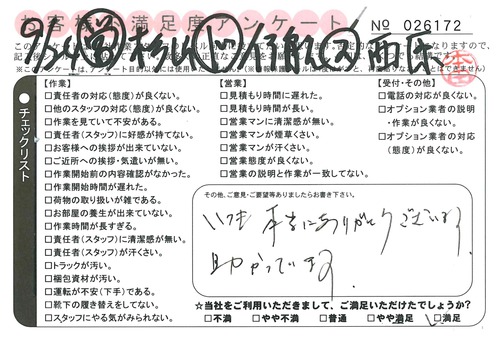 お客様満足度アンケート
№ 026172
チェックリスト
【作業】
□責任者の対応(態度)が良くない。
□他のスタッフの対応(態度)が良くない。
□作業を見ていて不安がある。
□責任者(スタッフ)に好感が持てない。
□お客様への挨拶が出来ていない。
□ご近所への挨拶・気遣いが無い。
□作業開始前の内容確認がなかった。
□作業開始時間が遅れた。
□荷物の取り扱いが雑である。
□お部屋の養生が出来ていない。
□作業時間が長すぎる。
□責任者(スタッフ)に清潔感が無い。
□責任者(スタッフ)が汗くさい。
□トラックが汚い。
□梱包資材が汚い。
□運転が不安(下手)である。
□靴下の履き替えをしてない。
□スタッフにやる気がみられない。
【営業】
□見積もり時間に遅れた。
□見積もり時間が長い。
□営業マンに清潔感が無い。
□営業マンが煙草くさい。
□営業マンが汗くさい。
□営業態度が良くない。
□営業の説明と作業が一致してない。
【受付・その他】
□電話の対応が良くない。
□オプション業者の説明
・作業が良くない。
□オプション業者の対応
(態度)が良くない。
その他、ご意見・ご要望等ありましたらお書き下さい。
いつも 本当にありがとうございます
助かっています
☆当社をご利用いただきまして、ご満足いただけたでしょうか?
□不満 □やや不満 □普通 □やや満足 □満足